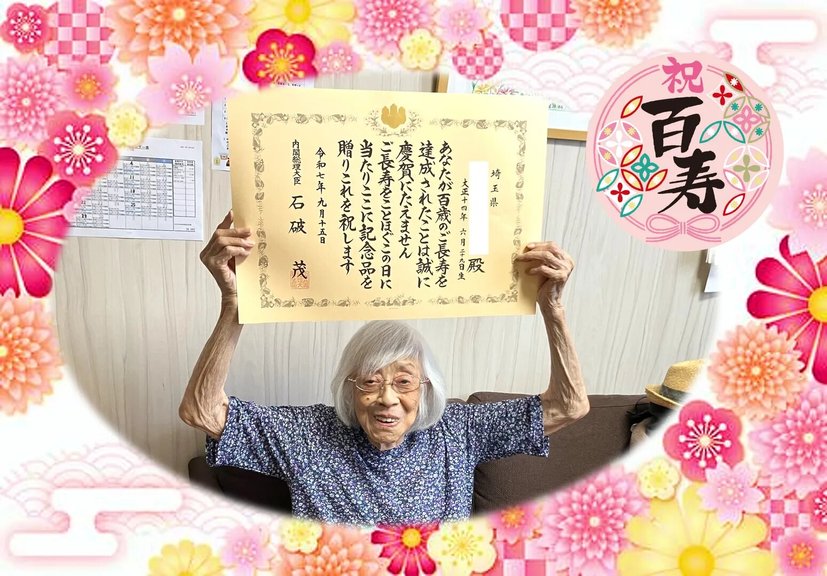 祝
百寿
埼玉県
大正十四年 六月二十九日生
殿
あなたが百歳のご長寿を
達成されたことは誠に
慶賀にたえません
ご長寿をことほぐこの日に
当たりここに記念品を
贈りこれを祝します
令和七年 九月十五日
内閣総理大臣 石破 茂